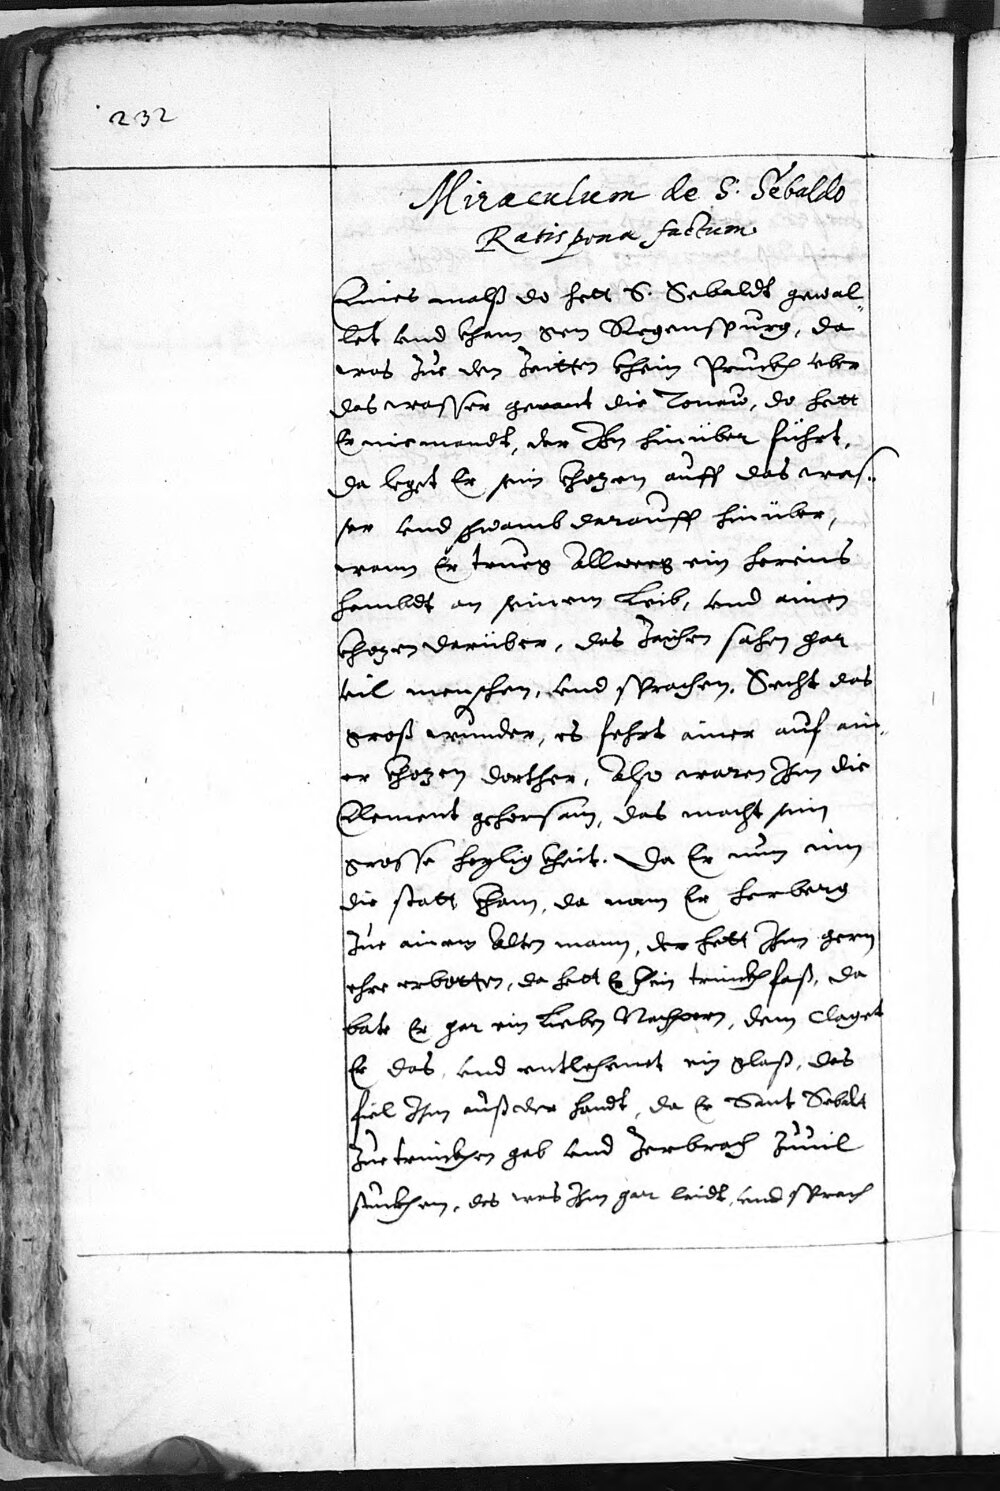 232
Miraculum de S. Sebaldo
Ratisponæ factum.
Eines malß do hett S. Sebaldt gewal-
let vnd kham gen Regenspurg, da
was zue den Zeitten khein Prückh vber
das wasser genant die Tonaw, do hett
Er niemandt, der Ihn hinüber führt,
da leget Er sein khozen auff das was-
ser vnd schwamb darauff hinüber,
wann Er trueg Allweeg ein herins
hembdt an seinem Leib, vnd ainen
khozen darüber, das Zaichen sahen gar
vil menschen, vnd sprachen, Secht das
groß wunder, es fehrt ainer auf ain-
er khozen dorther, Also waren Ihm die
Element gehorsam, das macht sein
grosse heyligkheit. Da Er nun inn
die statt kham, da nam Er herberg
Zue ainem Alten mann, der hett Ihm gern
ehre erbotten, da hett Er khein trinckhfaß, da
bate Er gar ein Lieben Nachpern, dem claget
Er das, vnd entlehenet ein glaß, das
fiel Ihm auß der handt, da Er Sant Sebalt
Zue trinckhen gab vnd Zerbrach Zuuil
stuckhen, das was Ihm gar leidt, vnd sprach